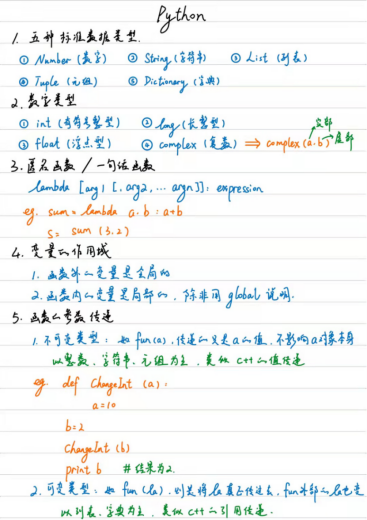 Python
1. 五种标准数据类型.
① Number (数字) ② String (字符串) ③ List (列表)
④ Tuple (元组) ⑤ Dictionary (字典)
2. 数字类型
① int (有符号整型) ② long (长整型) 实部
③ float (浮点型) ④ complex (复数) ⇒ complex (a.b) 虚部
3. 匿名函数 / 一句话函数
lambda [arg1 [, arg2, ... argn]]: expression
eg. sum = lambda a.b : a+b
S= sum (3.2)
4. 变量的作用域
1. 函数外的变量是全局的
2. 函数内的变量是局部的, 除非用 global 说明.
5. 函数的参数传递
1. 不可变类型: 如 fun(a), 传递的只是a的值, 不影响a对象本身
以整数、字符串、元组为主, 类似 c++ 的值传递
eg def ChangeInt (a):
a=10
b=2
ChangeInt (b)
print b # 结果为2.
2. 可变类型: 如 fun (la), 则是将la真正传过去, fun外部的la也变
以列表、字典为主, 类似 c++ 的引用传递.